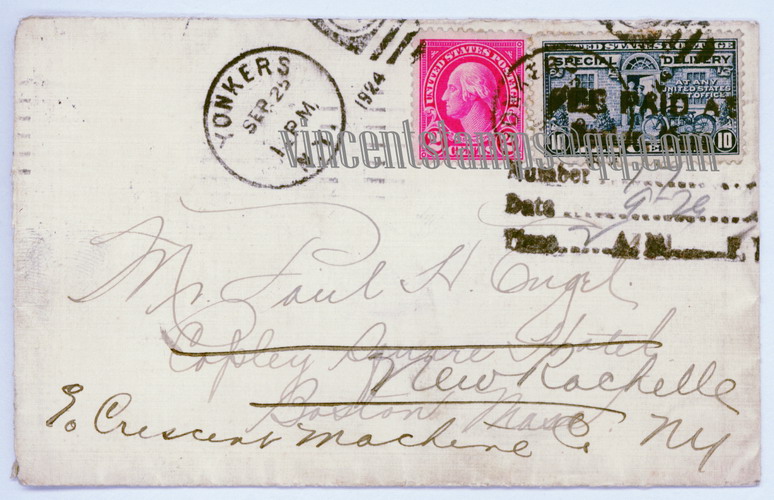 YONKERS
SEP 25
1 PM
N.Y.
1924
UNITED STATES POSTAGE
2 CENTS 2
UNITED STATES POSTAGE
SPECIAL DELIVERY
AT ANY
UNITED STATES
POST OFFICE
FEE PAID AT
10 10
vincentstamps@qq.com
Number
Date 9-26
Time A.M.
Mr. Paul H. Engel.
Copley Square Hotel
New Rochelle
Boston Mass
℅ Crescent Machine Co NY